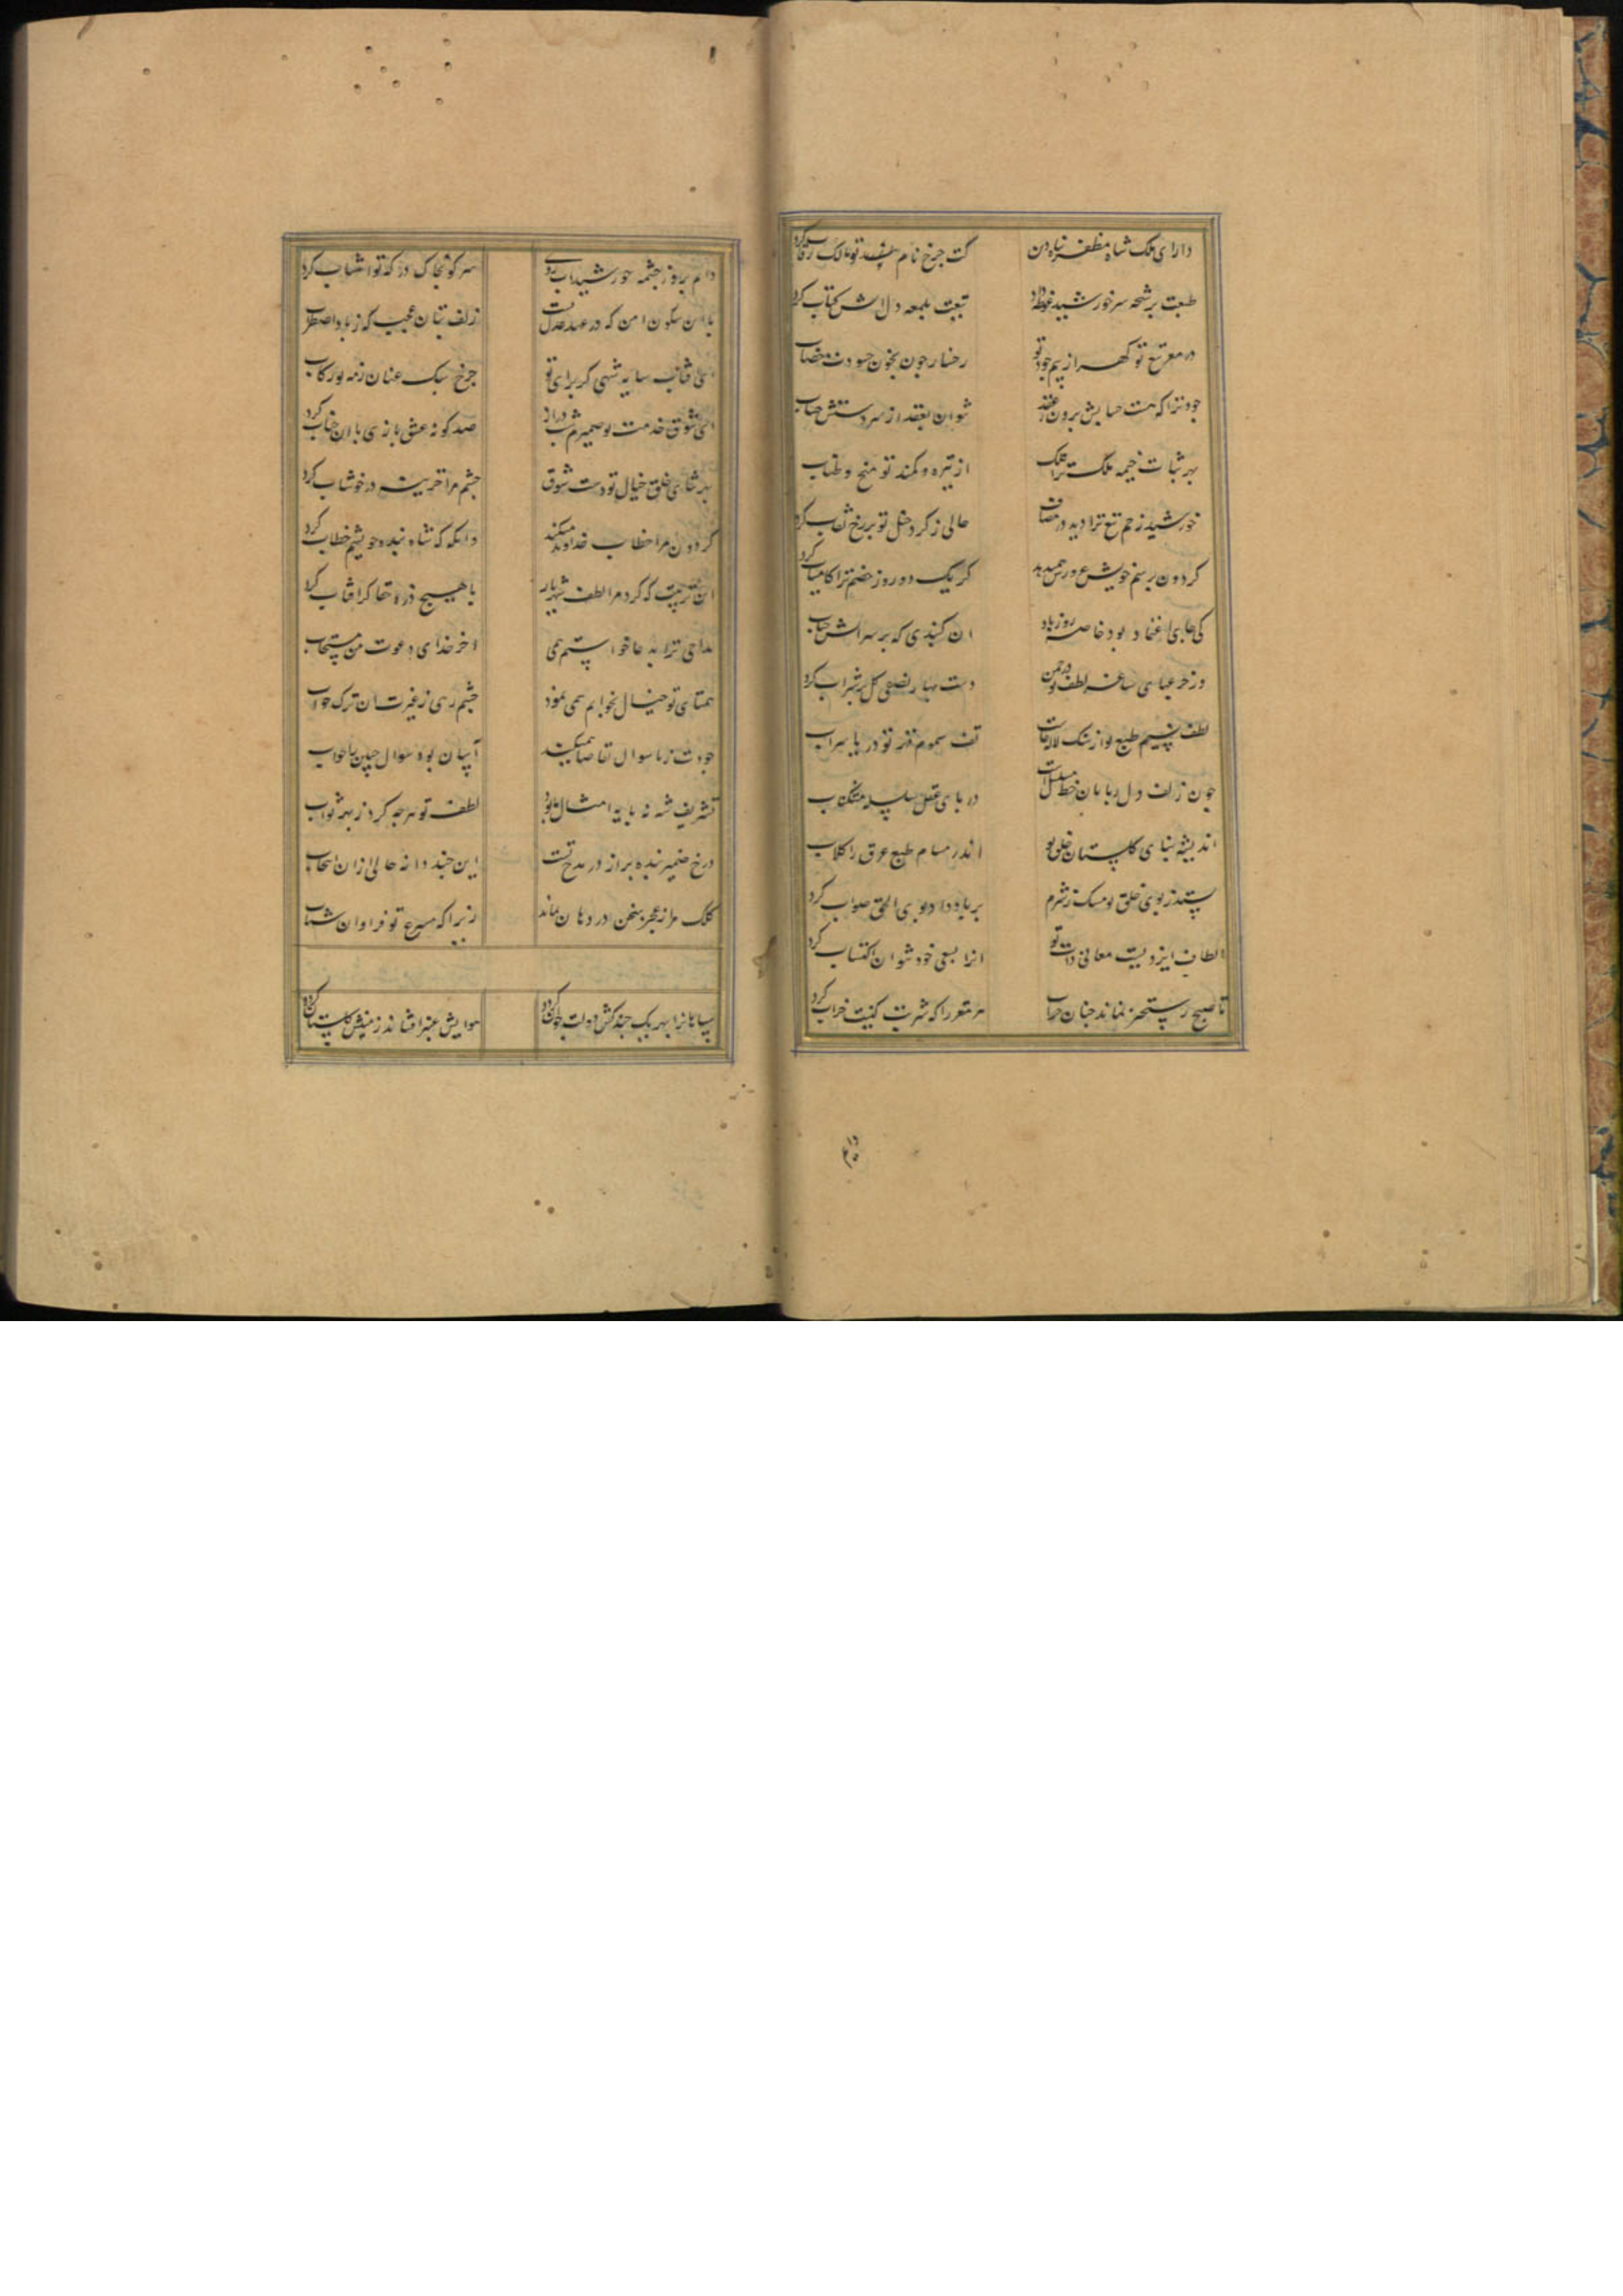 دارای ملک شاه مظفر
کت جرخ نام تو مالک رقاب کرد
طبعت برشحه سر خورشید غوطه داد
تیغت بلمعه دل اتش کباب کرد
در معرض تو کهر از بیم جود تو
رخسار جون بخون حسودت خضاب
جود ترا که هست حسابش برون ز عقد
نتوان بعقد از سر دستش حساب
بهر ثبات خیمه ملکت ترا فلک
از نیزه و کمند تو میخ و طناب
خورشید زخم تیغ ترا دید در مصاف
حالی ز کرد خیل تو بر رخ نقاب کرد
کردون برسم خویش
کر یک دو روز خصم ترا کامیاب کرد
کی جای اعتماد بود خاصه روز باد
ان کنبدی که بر سر اتش حباب
وز خرمی ساغر لطف تو در جمن
دست بهار نصفی کل بر شراب کرد
لطف نسیم طبع تو از سنک لاله ساخت
تف سموم قهر تو دریا سراب
جون زلف دل ربایان خط مسلسلت
در پای عقل سلسله مشکناب
اندیشه بنای کلستان خلق تو
اندر مسام طبع عرق را کلاب
ستد ز بوی خلق تو مسک ز شرم
بر باد داد بوی الحق صواب کرد
الطاف ایزدیست معانی ذات تو
انرا بسعی خود نتوان اکتساب کرد
تا صبح رستخیز نماند جنان خراب
هر شعر را که شربت کینت خراب کرد
دایم بروز جشمه خورشید اب روی
هر کو بخاک درکه تو انتساب کرد
با این سکون امن که در عهد عدل تست
زلف بتان عجب که ز باد اضطراب
ای افتاب سایه شهی کز برای تو
جرخ سبک عنان ز مه نو رکاب
ای شوق خدمت تو ضمیرم شب دراز
صد کونه عشق بازی با ان جناب کرد
بهر نثار خیل خیال تو دست شوق
جشم مرا خزینه در خوشاب کرد
کردون مرا خطاب خداوند میکند
زانکه که شاه بنده خویشم خطاب کرد
این تربیت که کرد مرا لطف شهریار
با هیچ ذره حقا کر افتاب کرد
مداحی ترا بدعا خواستم همی
اخر خدای دعوت من مستجاب
همتای تو خیال بخوابم همی نمود
جشم رهی ز غیرت ان ترک خواب
جودت ز ما سوال تقاضا همی کند
آسان بود سوال چنین با جواب
تشریف شه نه پایه امثال ما بود
لطف تو هرجه کرد ز بهر ثواب
درج ضمیر بنده پر از در مدح تست
این جند دانه حالی ازان انتخاب
کلک مرا ز عجز سخن در دهان بماند
زیرا که مسرع تو فراوان شتاب
سپاهانرا بهر یک جندکش دولت جوان کردد
هوایش عنبر افشاند زمینش کلستان کردد